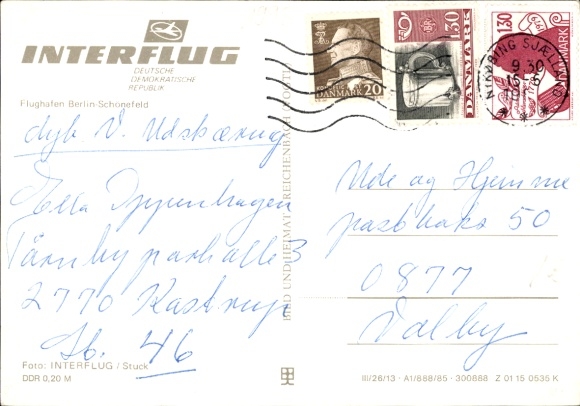 INTERFLUG
DEUTSCHE
DEMOKRATISCHE
REPUBLIK
Flughafen Berlin-Schönefeld
dyb V. Udskæring
Ella Oppenhagen
Tårnby parkalle 3
2770 Kastrup
Lb. 46
Foto: INTERFLUG / Stuck
DDR 0,20 M
BILD UND HEIMAT REICHENBACH (VOGTL)
DANMARK 20
1.30
DANMARK
1.30
DANMARK
NYKØBING SJÆLL
9.30
Ude og Hjemme
postboks 50
0877
Valby
III/26/13 · A1/888/85 · 300888 Z 01 15 0535 K